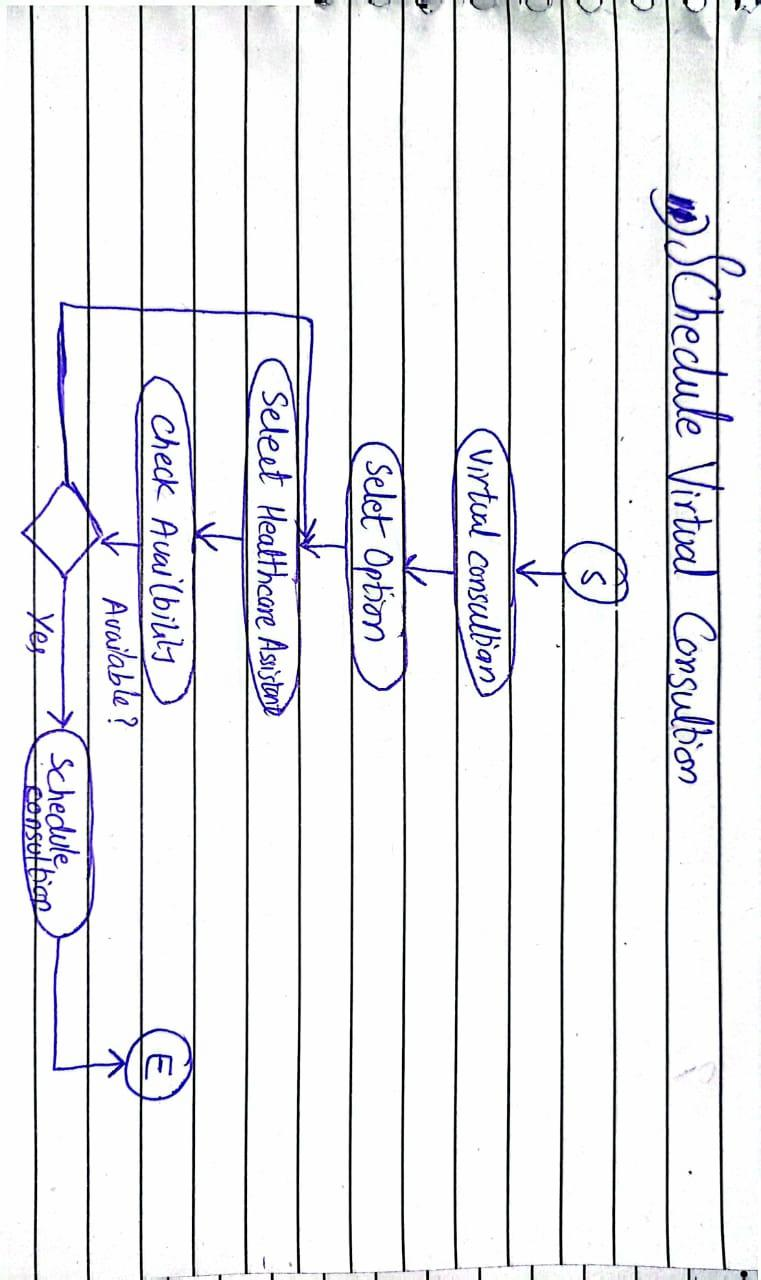 SChedule Virtual Consultion
S
Virtual consultian
Selct Option
Select Healthcare Assistant
Check Availbility
Available?
Yes
Schedule
consultion
E